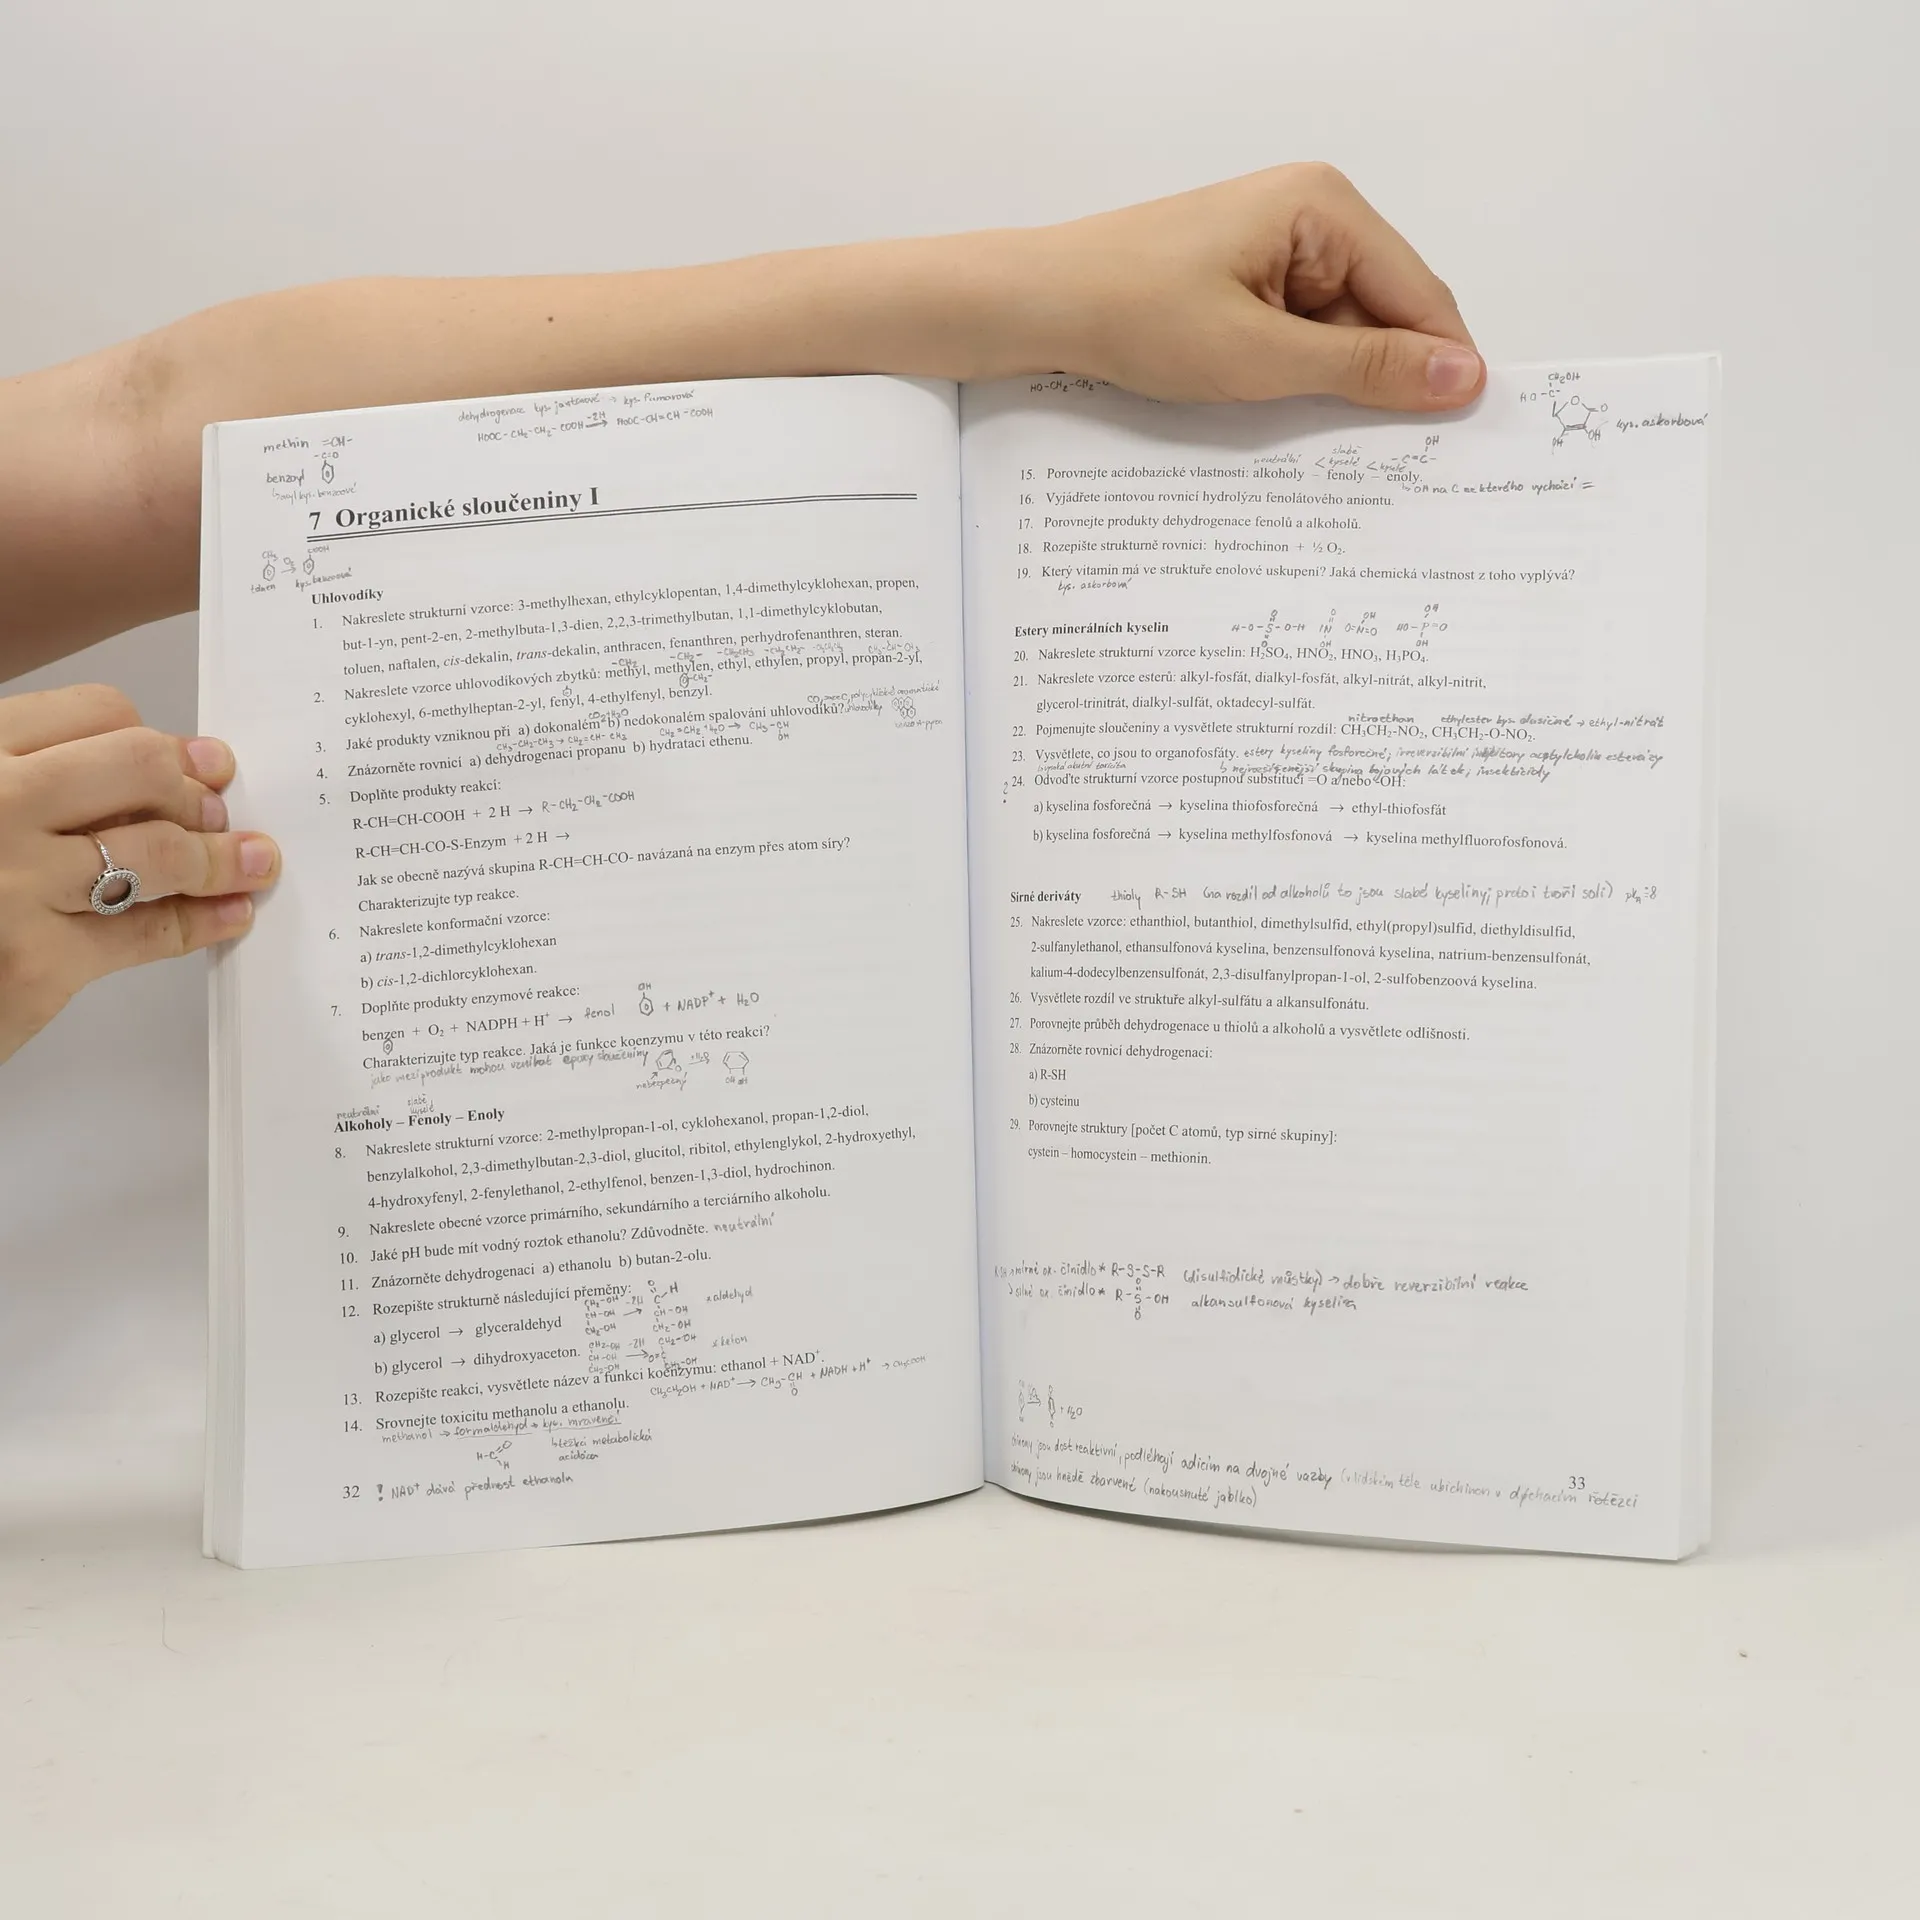 dehydrogenace kys. jantarové → kys. fumarová
HOOC-CH₂-CH₂-COOH -2H→ HOOC-CH=CH-COOH
methin =CH-
-C=O
benzoyl
7 Organické sloučeniny I
CH₃ COOH
O₂
toluen kys. benzoová
Uhlovodíky
1. Nakreslete strukturní vzorce: 3-methylhexan, ethylcyklopentan, 1,4-dimethylcyklohexan, propen,
but-1-yn, pent-2-en, 2-methylbuta-1,3-dien, 2,2,3-trimethylbutan, 1,1-dimethylcyklobutan,
toluen, naftalen, cis-dekalin, trans-dekalin, anthracen, fenanthren, perhydrofenanthren, steran.
2. Nakreslete vzorce uhlovodíkových zbytků: methyl, methylen, ethyl, ethylen, propyl, propan-2-yl,
cyklohexyl, 6-methylheptan-2-yl, fenyl, 4-ethylfenyl, benzyl.
3. Jaké produkty vzniknou při a) dokonalém b) nedokonalém spalování uhlovodíků?
CH₃-CH₂-CH₃ → CH₂=CH-CH₃ CH₂=CH₂ + H₂O → CH₃-CH
OH
4. Znázorněte rovnicí a) dehydrogenaci propanu b) hydrataci ethenu.
5. Doplňte produkty reakcí:
R-CH=CH-COOH + 2 H → R-CH₂-CH₂-COOH
R-CH=CH-CO-S-Enzym + 2 H →
Jak se obecně nazývá skupina R-CH=CH-CO- navázaná na enzym přes atom síry?
Charakterizujte typ reakce.
6. Nakreslete konformační vzorce:
a) trans-1,2-dimethylcyklohexan
b) cis-1,2-dichlorcyklohexan.
7. Doplňte produkty enzymové reakce:
OH
benzen + O₂ + NADPH + H⁺ → fenol + NADP⁺ + H₂O
Charakterizujte typ reakce. Jaká je funkce koenzymu v této reakci?
jako meziprodukt mohou vznikat epoxy sloučeniny
nebezpečný
OH OH
neutrální slabě kyselé
Alkoholy – Fenoly – Enoly
8. Nakreslete strukturní vzorce: 2-methylpropan-1-ol, cyklohexanol, propan-1,2-diol,
benzylalkohol, 2,3-dimethylbutan-2,3-diol, glucitol, ribitol, ethylenglykol, 2-hydroxyethyl,
4-hydroxyfenyl, 2-fenylethanol, 2-ethylfenol, benzen-1,3-diol, hydrochinon.
9. Nakreslete obecné vzorce primárního, sekundárního a terciárního alkoholu.
10. Jaké pH bude mít vodný roztok ethanolu? Zdůvodněte. neutrální
11. Znázorněte dehydrogenaci a) ethanolu b) butan-2-olu.
12. Rozepište strukturně následující přeměny:
a) glycerol → glyceraldehyd
x aldehyd
b) glycerol → dihydroxyaceton.
x keton
13. Rozepište reakci, vysvětlete název a funkci koenzymu: ethanol + NAD⁺.
CH₃CH₂OH + NAD⁺ → CH₃-CH + NADH + H⁺ → CH₃COOH
O
14. Srovnejte toxicitu methanolu a ethanolu.
methanol → formaldehyd → kys. mravenčí
těžká metabolická
acidóza
32 ! NAD⁺ dává přednost ethanolu
HO-CH₂-CH₂-
CH₂OH
HO-C-
kys. askorbová
neutrální < slabě kyselé < kyselé
15. Porovnejte acidobazické vlastnosti: alkoholy – fenoly – enoly.
OH na C ze kterého vychází =
16. Vyjádřete iontovou rovnicí hydrolýzu fenolátového aniontu.
17. Porovnejte produkty dehydrogenace fenolů a alkoholů.
18. Rozepište strukturně rovnici: hydrochinon + ½ O₂.
19. Který vitamin má ve struktuře enolové uskupení? Jaká chemická vlastnost z toho vyplývá?
kys. askorbová
Estery minerálních kyselin
20. Nakreslete strukturní vzorce kyselin: H₂SO₄, HNO₂, HNO₃, H₃PO₄.
21. Nakreslete vzorce esterů: alkyl-fosfát, dialkyl-fosfát, alkyl-nitrát, alkyl-nitrit,
glycerol-trinitrát, dialkyl-sulfát, oktadecyl-sulfát.
nitroethan ethylester kys. dusičné → ethyl-nitrát
22. Pojmenujte sloučeniny a vysvětlete strukturní rozdíl: CH₃CH₂-NO₂, CH₃CH₂-O-NO₂.
23. Vysvětlete, co jsou to organofosfáty. estery kyseliny fosforečné; irreverzibilní inhibitory acetylcholin esterázy
vysoká akutní toxicita nejrozšířenější skupina bojových látek, insekticidy
24. Odvoďte strukturní vzorce postupnou substitucí =O a/nebo -OH:
a) kyselina fosforečná → kyselina thiofosforečná → ethyl-thiofosfát
b) kyselina fosforečná → kyselina methylfosfonová → kyselina methylfluorofosfonová.
Sirné deriváty thioly R-SH (na rozdíl od alkoholů to jsou slabé kyseliny; proto i tvoří soli)
25. Nakreslete vzorce: ethanthiol, butanthiol, dimethylsulfid, ethyl(propyl)sulfid, diethyldisulfid,
2-sulfanylethanol, ethansulfonová kyselina, benzensulfonová kyselina, natrium-benzensulfonát,
kalium-4-dodecylbenzensulfonát, 2,3-disulfanylpropan-1-ol, 2-sulfobenzoová kyselina.
26. Vysvětlete rozdíl ve struktuře alkyl-sulfátu a alkansulfonátu.
27. Porovnejte průběh dehydrogenace u thiolů a alkoholů a vysvětlete odlišnosti.
28. Znázorněte rovnicí dehydrogenaci:
a) R-SH
b) cysteinu
29. Porovnejte struktury [počet C atomů, typ sirné skupiny]:
cystein – homocystein – methionin.
mírné ox. činidlo R-S-S-R (disulfidické můstky) → dobře reverzibilní reakce
silné ox. činidlo R-S-OH alkansulfonová kyselina
+ H₂O
chinony jsou dost reaktivní, podléhají adicím na dvojné vazby (v lidském těle ubichinon v dýchacím řetězci
chinony jsou hnědě zbarvené (nakousnuté jablko)
33